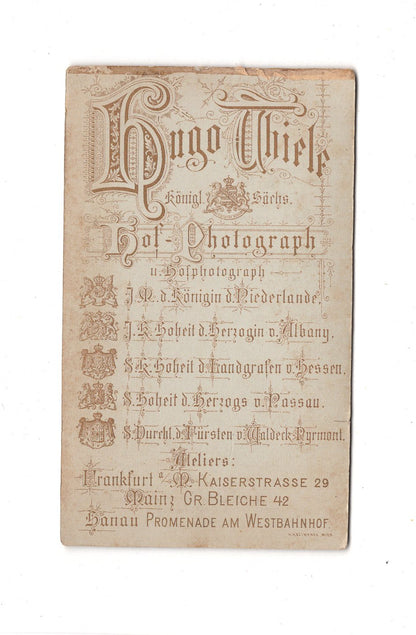 Hugo Thiele
Königl. Sächs.
Hof-Photograph
u. Hofphotograph
J. M. d. Königin d. Niederlande.
J. K. Hoheit d. Herzogin v. Albany.
S. K. Hoheit d. Landgrafen v. Hessen.
S. Hoheit d. Herzogs v. Nassau.
S. Durchl. d. Fürsten v. Waldeck Pyrmont.
Ateliers:
Frankfurt a/M. KAISERSTRASSE 29
Mainz GR. BLEICHE 42
Hanau PROMENADE AM WESTBAHNHOF.